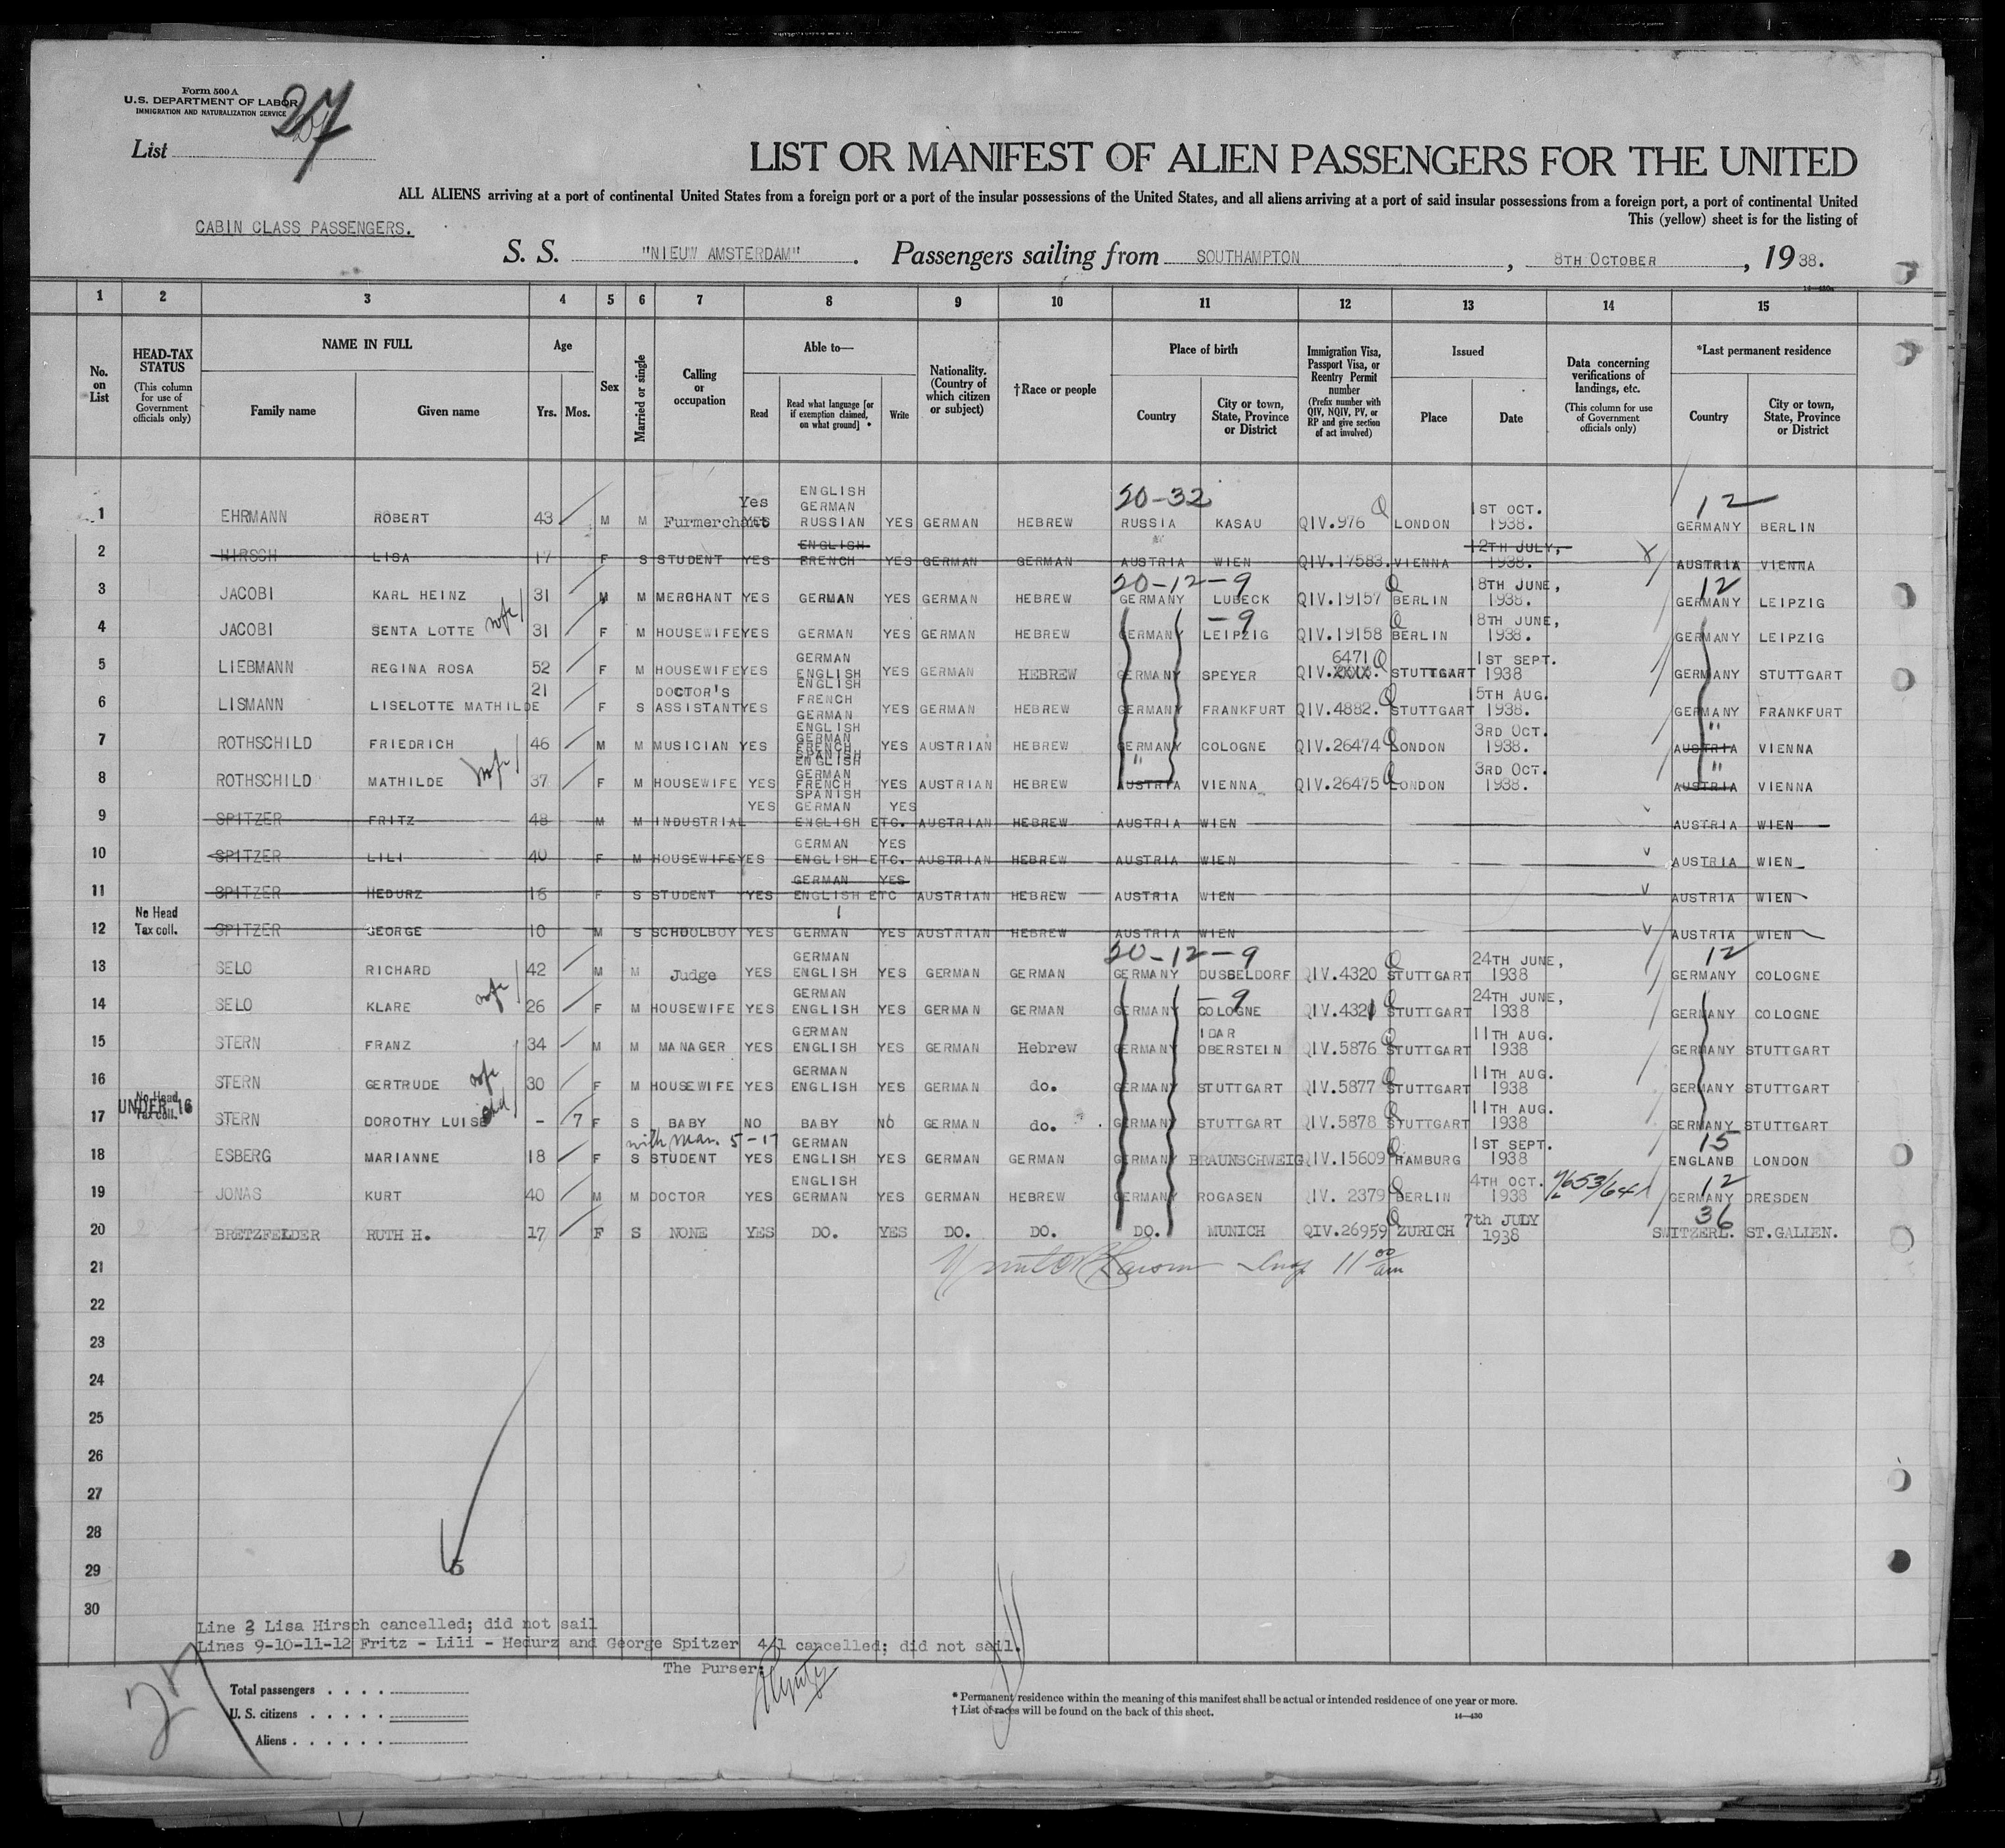 Form 500 A
U.S. DEPARTMENT OF LABOR
IMMIGRATION AND NATURALIZATION SERVICE
List 27
LIST OR MANIFEST OF ALIEN PASSENGERS FOR THE UNITED
ALL ALIENS arriving at a port of continental United States from a foreign port or a port of the insular possessions of the United States, and all aliens arriving at a port of said insular possessions from a foreign port, a port of continental United
This (yellow) sheet is for the listing of
CABIN CLASS PASSENGERS.
S. S. "NIEUW AMSTERDAM". Passengers sailing from SOUTHAMPTON, 8TH OCTOBER, 1938.
14—430a
1 2 3 4 5 6 7 8 9 10 11 12 13 14 15
No. on List
HEAD-TAX STATUS (This column for use of Government officials only)
NAME IN FULL Family name Given name
Age Yrs. Mos.
Sex
Married or single
Calling or occupation
Able to— Read Read what language [or if exemption claimed, on what ground] * Write
Nationality. (Country of which citizen or subject)
†Race or people
Place of birth Country City or town, State, Province or District
Immigration Visa, Passport Visa, or Reentry Permit number (Prefix number with QIV, NQIV, PV, or RP and give section of act involved)
Issued Place Date
Data concerning verifications of landings, etc. (This column for use of Government officials only)
*Last permanent residence Country City or town, State, Province or District
20-32 12
1 EHRMANN ROBERT 43 M M Furmerchant Yes YES ENGLISH GERMAN RUSSIAN YES GERMAN HEBREW RUSSIA KASAU QIV.976 Q LONDON 1ST OCT. 1938. GERMANY BERLIN
2 HIRSCH LISA 17 F S STUDENT YES ENGLISH FRENCH YES GERMAN GERMAN AUSTRIA WIEN QIV.17583. VIENNA 12TH JULY, 1938. X AUSTRIA VIENNA
20-12-9 12
3 JACOBI KARL HEINZ 31 M M MERCHANT YES GERMAN YES GERMAN HEBREW GERMANY LUBECK QIV.19157 Q BERLIN 18TH JUNE, 1938. GERMANY LEIPZIG
4 JACOBI SENTA LOTTE wife 31 F M HOUSEWIFE YES GERMAN YES GERMAN HEBREW GERMANY -9 LEIPZIG QIV.19158 Q BERLIN 18TH JUNE, 1938. GERMANY LEIPZIG
5 LIEBMANN REGINA ROSA 52 F M HOUSEWIFE YES GERMAN ENGLISH YES GERMAN HEBREW GERMANY SPEYER QIV. 6471 Q STUTTGART 1ST SEPT. 1938 GERMANY STUTTGART
6 LISMANN LISELOTTE MATHILDE 21 F S DOCTOR'S ASSISTANT YES ENGLISH FRENCH GERMAN YES GERMAN HEBREW GERMANY FRANKFURT QIV.4882. Q STUTTGART 15TH AUG. 1938. GERMANY FRANKFURT
7 ROTHSCHILD FRIEDRICH 46 M M MUSICIAN YES ENGLISH GERMAN FRENCH SPANISH YES AUSTRIAN HEBREW GERMANY COLOGNE QIV.26474 Q LONDON 3RD OCT. 1938. " AUSTRIA VIENNA
8 ROTHSCHILD MATHILDE wife 37 F M HOUSEWIFE YES ENGLISH GERMAN FRENCH SPANISH YES AUSTRIAN HEBREW " AUSTRIA VIENNA QIV.26475 Q LONDON 3RD OCT. 1938. " AUSTRIA VIENNA
9 SPITZER FRITZ 48 M M INDUSTRIAL YES GERMAN ENGLISH ETC. YES AUSTRIAN HEBREW AUSTRIA WIEN AUSTRIA WIEN
10 SPITZER LILI 40 F M HOUSEWIFE YES GERMAN ENGLISH ETC. YES AUSTRIAN HEBREW AUSTRIA WIEN AUSTRIA WIEN
11 SPITZER HEDURZ 16 F S STUDENT YES GERMAN ENGLISH ETC YES AUSTRIAN HEBREW AUSTRIA WIEN AUSTRIA WIEN
12 No Head Tax coll. SPITZER GEORGE 10 M S SCHOOLBOY YES GERMAN YES AUSTRIAN HEBREW AUSTRIA WIEN AUSTRIA WIEN
20-12-9 12
13 SELO RICHARD 42 M M Judge YES GERMAN ENGLISH YES GERMAN GERMAN GERMANY DUSSELDORF QIV.4320 Q STUTTGART 24TH JUNE, 1938 GERMANY COLOGNE
14 SELO KLARE wife 26 F M HOUSEWIFE YES GERMAN ENGLISH YES GERMAN GERMAN GERMANY -9 COLOGNE QIV.4321 Q STUTTGART 24TH JUNE, 1938 GERMANY COLOGNE
15 STERN FRANZ 34 M M MANAGER YES GERMAN ENGLISH YES GERMAN Hebrew GERMANY IDAR OBERSTEIN QIV.5876 Q STUTTGART 11TH AUG. 1938 GERMANY STUTTGART
16 STERN GERTRUDE wife 30 F M HOUSEWIFE YES GERMAN ENGLISH YES GERMAN do. GERMANY STUTTGART QIV.5877 Q STUTTGART 11TH AUG. 1938 GERMANY STUTTGART
17 No Head Tax coll. UNDER 16 STERN DOROTHY LUISE chd - 7 F S BABY NO BABY NO GERMAN do. GERMANY STUTTGART QIV.5878 Q STUTTGART 11TH AUG. 1938 GERMANY STUTTGART
5-17 15
18 ESBERG MARIANNE 18 F S STUDENT YES GERMAN ENGLISH YES GERMAN GERMAN GERMANY BRAUNSCHWEIG QIV.15609 Q HAMBURG 1ST SEPT. 1938 ENGLAND LONDON
19 JONAS KURT 40 M M DOCTOR YES ENGLISH GERMAN YES GERMAN HEBREW GERMANY ROGASEN QIV. 2379 Q BERLIN 4TH OCT. 1938 12 GERMANY DRESDEN
20 BRETZFELDER RUTH H. 17 F S NONE YES DO. YES DO. DO. DO. MUNICH QIV.26959 Q ZURICH 7th JULY 1938 36 SWITZERL. ST.GALLEN.
21 11 00 am
22
23
24
25
26
27
28
29
30
Line 2 Lisa Hirsch cancelled; did not sail
Lines 9-10-11-12 Fritz - Lili - Hedurz and George Spitzer 4/1 cancelled; did not sail.
The Purser:
27
Total passengers . . . .
U. S. citizens . . . . .
Aliens . . . . . .
* Permanent residence within the meaning of this manifest shall be actual or intended residence of one year or more.
† List of races will be found on the back of this sheet.
14—430